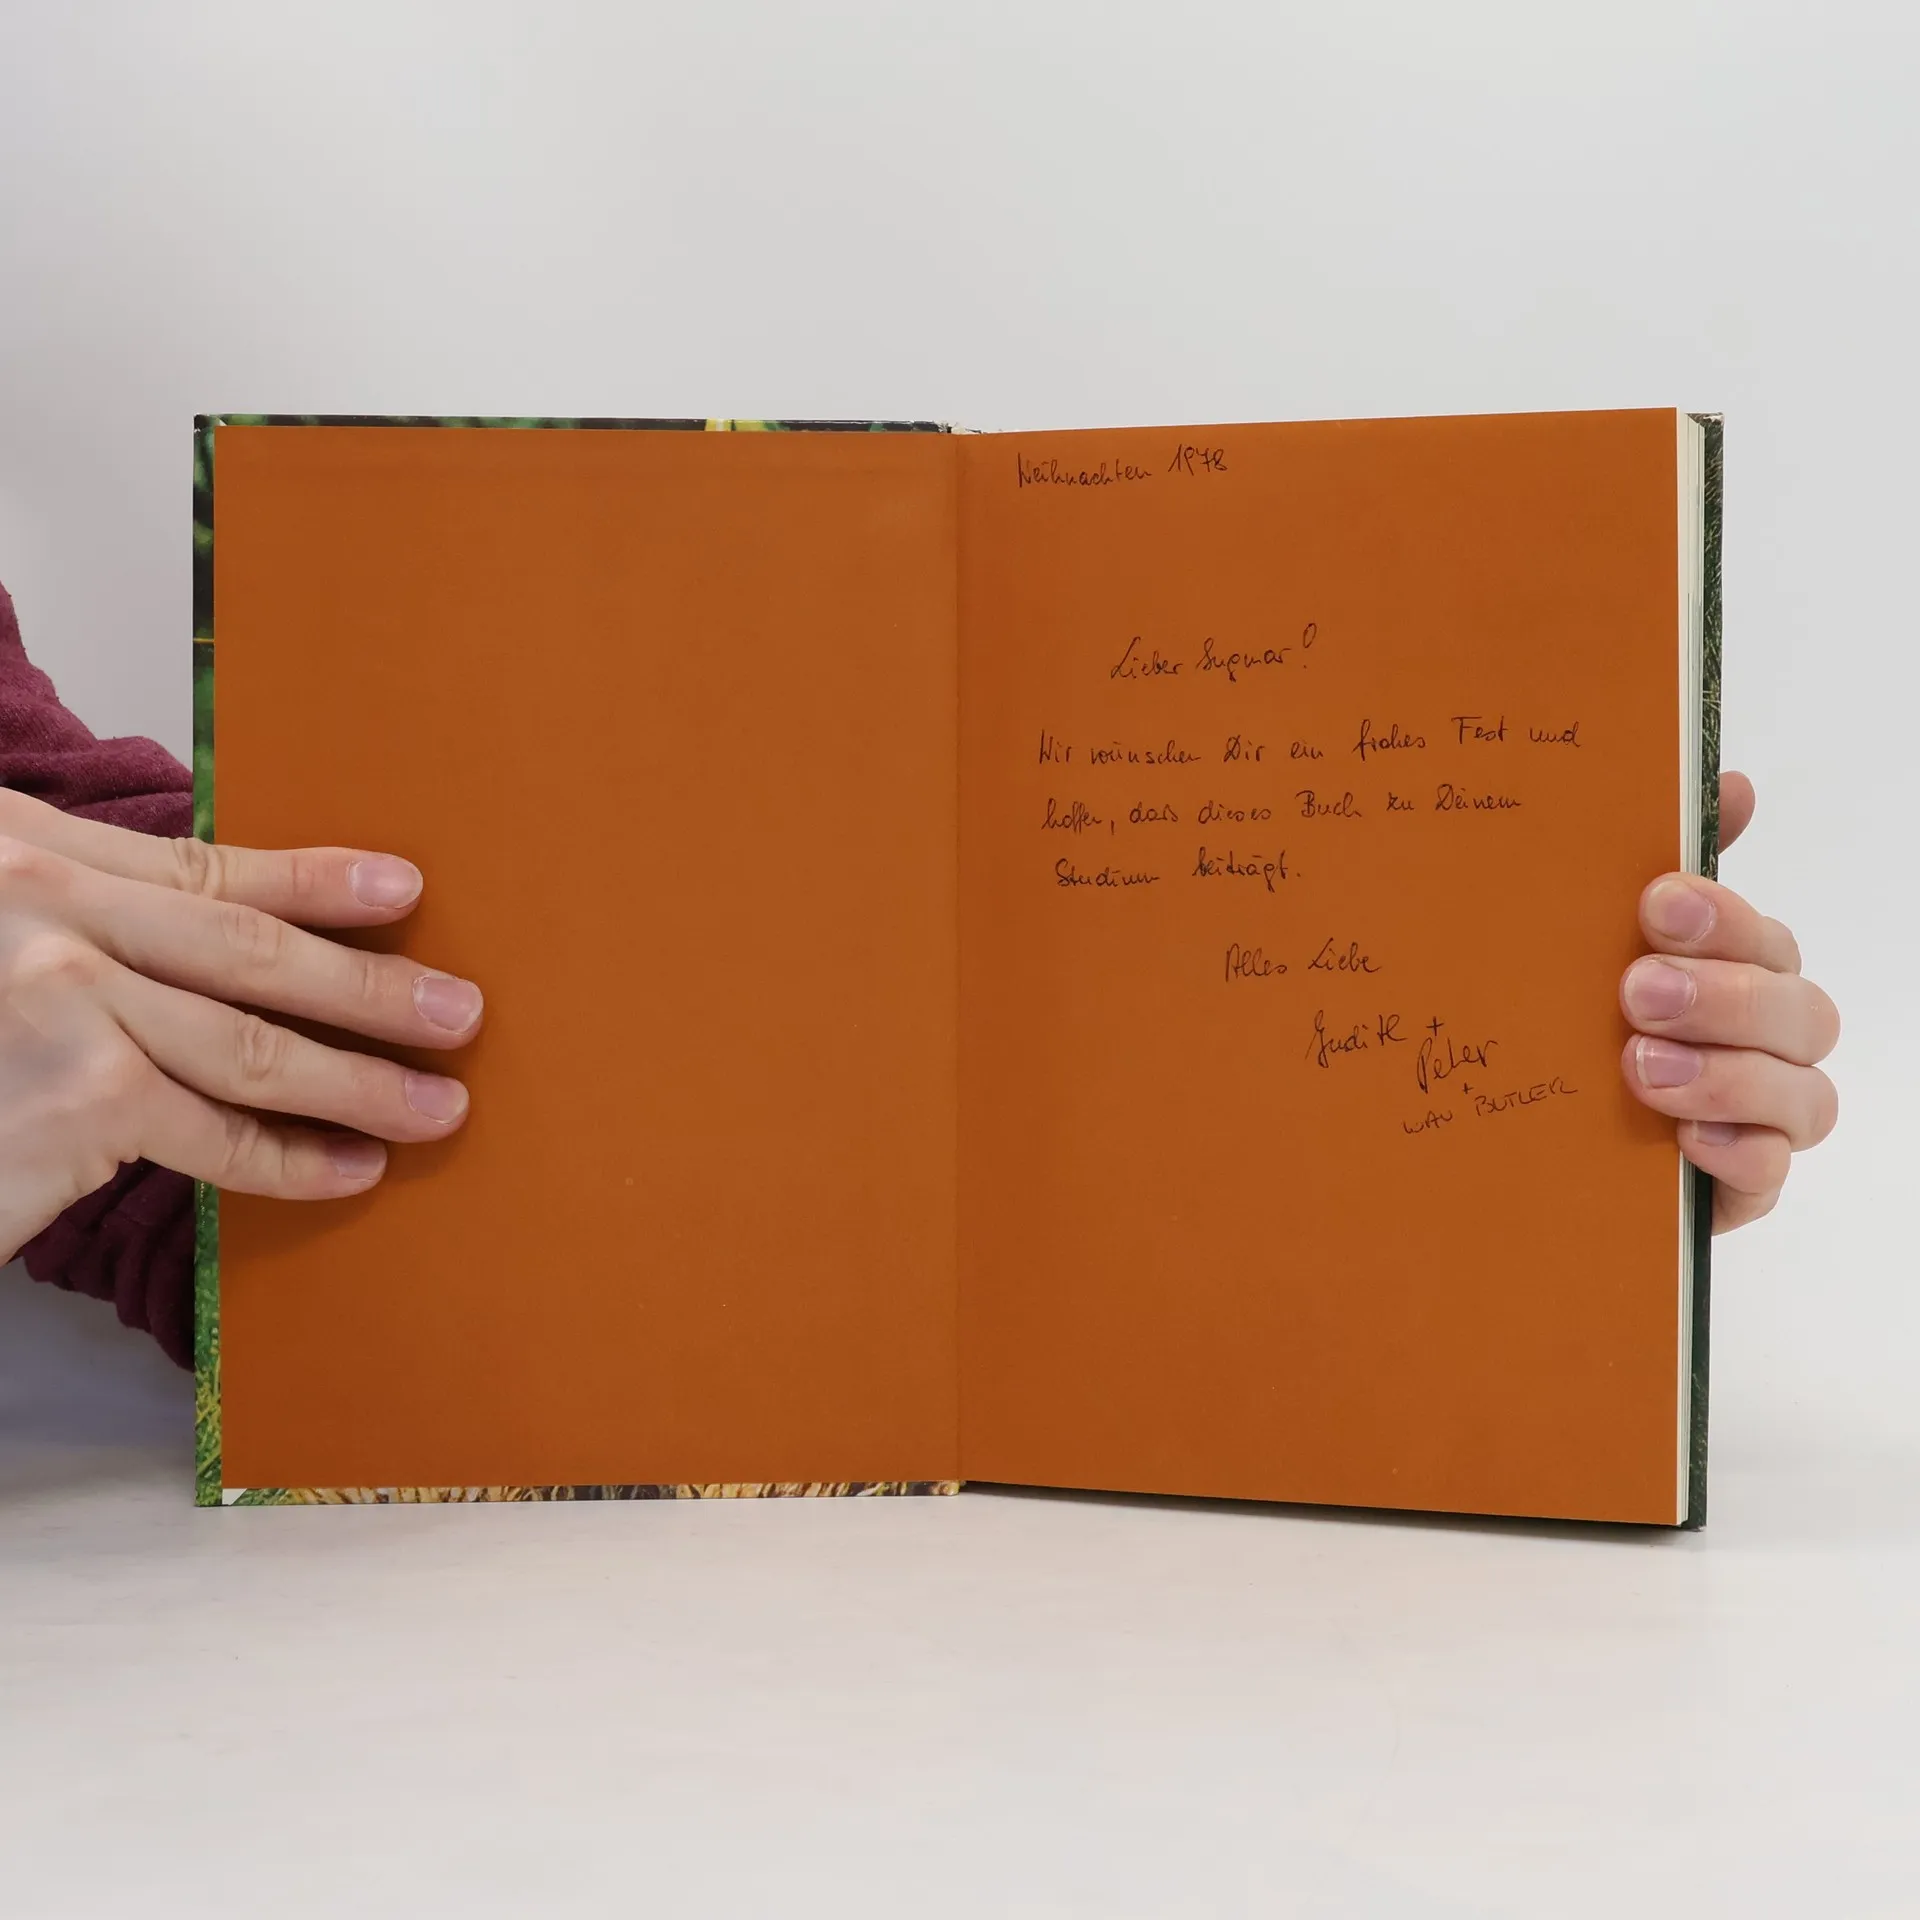 Weihnachten 1978
Lieber Ingmar!
Wir wünschen Dir ein frohes Fest und
hoffen, dass dieses Buch zu Deinem
Studium beiträgt.
Alles Liebe
Judith +
Peter
+
WAU + BUTLER